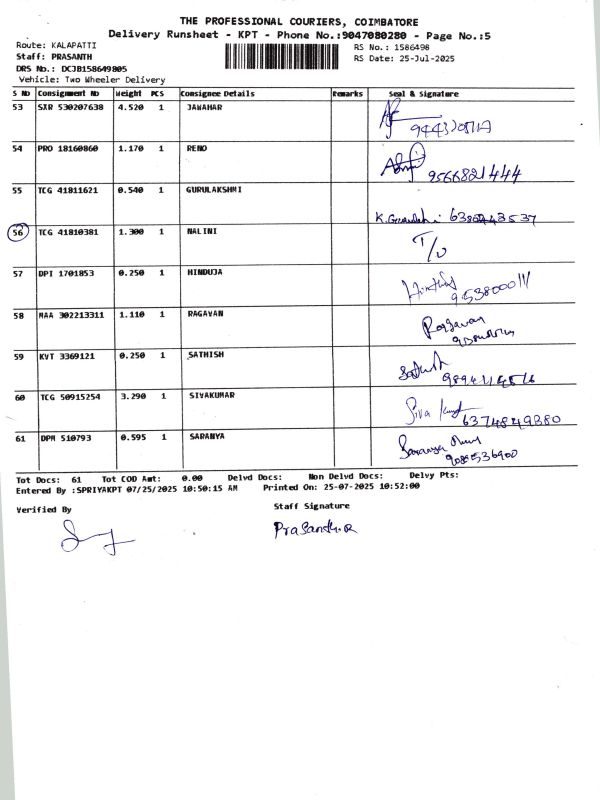 THE PROFESSIONAL COURIERS, COIMBATORE
Delivery Runsheet - KPT - Phone No.:9047080280 - Page No.:5
Route: KALAPATTI
RS No.: 1586498
Staff: PRASANTH
RS Date: 25-Jul-2025
DRS No.: DCJB158649805
Vehicle: Two Wheeler Delivery
S No Consignment No Weight PCS Consignee Details Remarks Seal & Signature
53 SXR 530207638 4.520 1 JAWAHAR
54 PRO 18160860 1.170 1 RENO
9566821444
55 TCG 41811621 0.540 1 GURULAKSHMI
56 TCG 41810381 1.300 1 NALINI T/O
57 DPI 1701853 0.250 1 HINDUJA
58 MAA 302213311 1.110 1 RAGAVAN Ragavan
59 KVT 3369121 0.250 1 SATHISH
60 TCG 50915254 3.290 1 SIVAKUMAR Siva
6374849380
61 DPM 510793 0.595 1 SARANYA Saranya
Tot Docs: 61 Tot COD Amt: 0.00 Delvd Docs: Non Delvd Docs: Delvy Pts:
Entered By :SPRIYAKPT 07/25/2025 10:50:15 AM Printed On: 25-07-2025 10:52:00
Verified By
Staff Signature
Prasanth.R